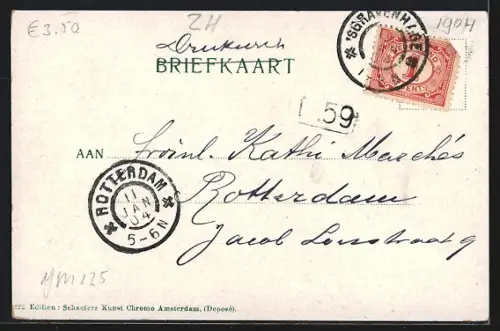 €3.50
ZH
1904
Drukwerk
BRIEFKAART
'SGRAVENHAGE
1
CENT
59
AAN
Fröul. Kathi Marchés
Rotterdam
Jacob
ROTTERDAM
11
JAN
04
5-6N
125
Edition: Schaefers Kunst Chromo Amsterdam, (Deposé).